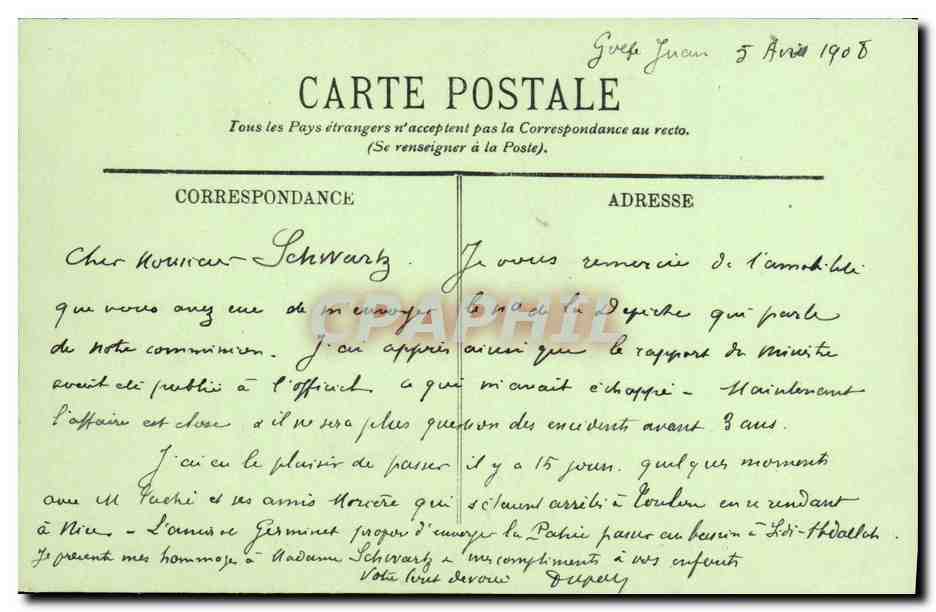 Golfe Juan 5 Avril 1908
CARTE POSTALE
Tous les Pays étrangers n'acceptent pas la Correspondance au recto.
(Se renseigner à la Poste).
CORRESPONDANCE
ADRESSE
Cher Monsieur Schwartz. Je vous remercie de l'amabilité
que vous avez eue de m'envoyer le no de la Depêche qui parle
de notre commission. J'ai appris ainsi que le rapport du Ministre
avait été publié à l'officiel ce qui m'avait échappé - Maintenant
l'affaire est close & il ne sera plus question des incidents avant 3 ans.
J'ai eu le plaisir de passer il y a 15 jours quelques moments
avec M et ses amis qui s'étaient arrêtés à Toulon en se rendant
à Nice - L'amiral Germinet propose d'envoyer la Patrie passer au bassin à Sidi-Abdallah.
Je présente mes hommages à Madame Schwartz & mes compliments à vos enfants
Votre tout dévoué Dupuy
CPAPHIL